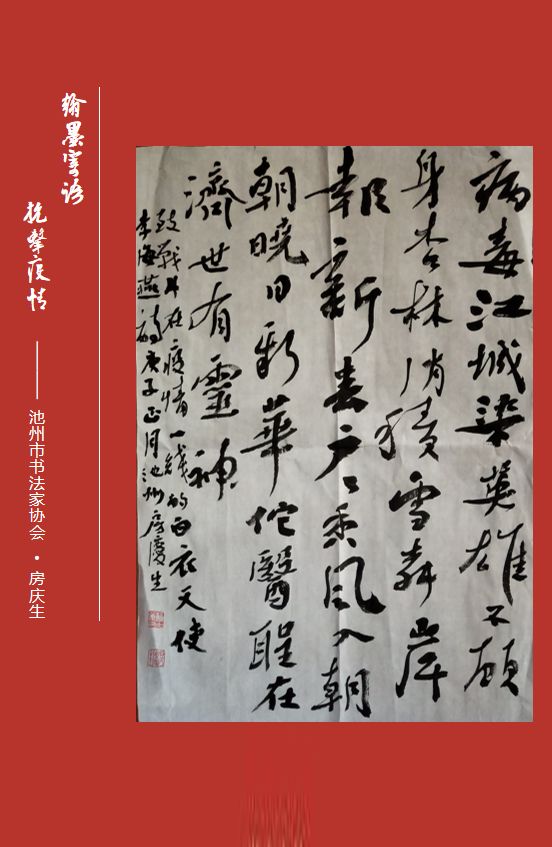 翰墨寄语
抗擊疫情
池州市书法家协会 · 房庆生
病毒江城染英雄不顾
身杏林消积雪岸
報新春户々乘风入朝
朝曉日新華佗醫聖在
濟世有靈神
致战斗在疫情一线的白衣天使
李海燕诗庚子正月池州房慶生